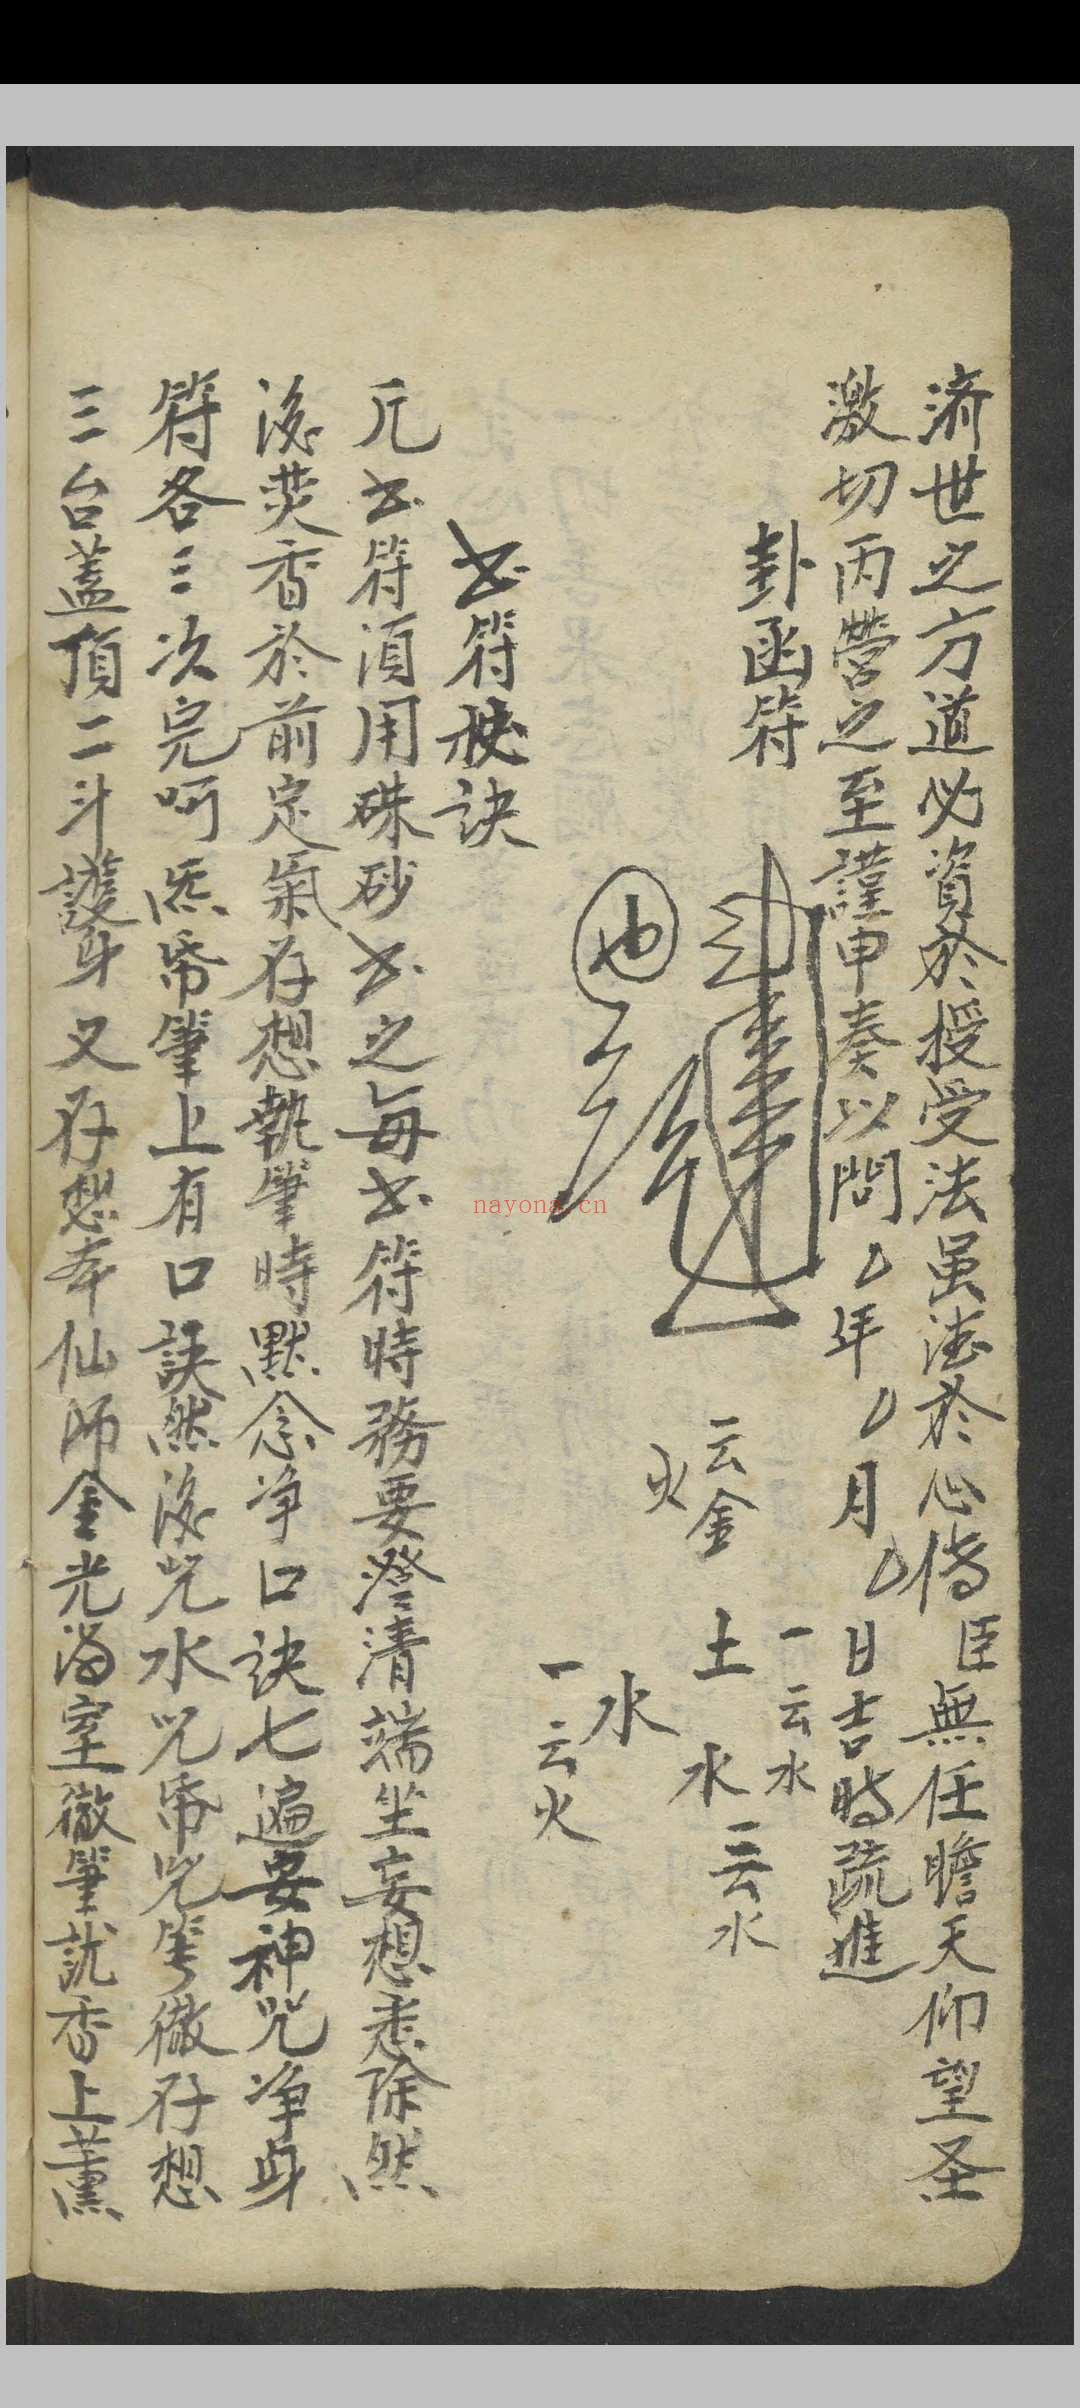 济世之方道必資於授受法虽法於心傳臣無任瞻天仰望圣
激切丙營之至謹申奏以聞 年 月 日吉時疏進
卦函符
一云水
云金 土 水 云水
火 水
一云火
也
书符秘诀
凢书符湏用硃砂书之每书符時務要澄清端坐妄想悉除然
後焚香於前定氣存想執筆時默念净口诀七遍安神咒净身
符各三次完呵炁帋筆上有口訣然後咒水咒帋咒筆徹存想
三台蓋頂二斗護身又存想本仙師金光满室徹筆就香上薰
nayona.cn